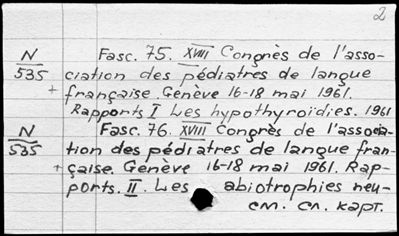 2
N Fasc. 75. XVIII Congrès de l'asso-
535 ciation des pédiatres de langue
+ française. Genève 16-18 mai 1961.
Rapports I Les hypothyroïdies. 1961
N Fasc. 76. XVIII Congrès de l'associa-
535 tion des pédiatres de langue fran-
+ çaise. Genève 16-18 mai 1961. Rap-
ports. II. Les abiotrophies neu-
см. сл. карт.